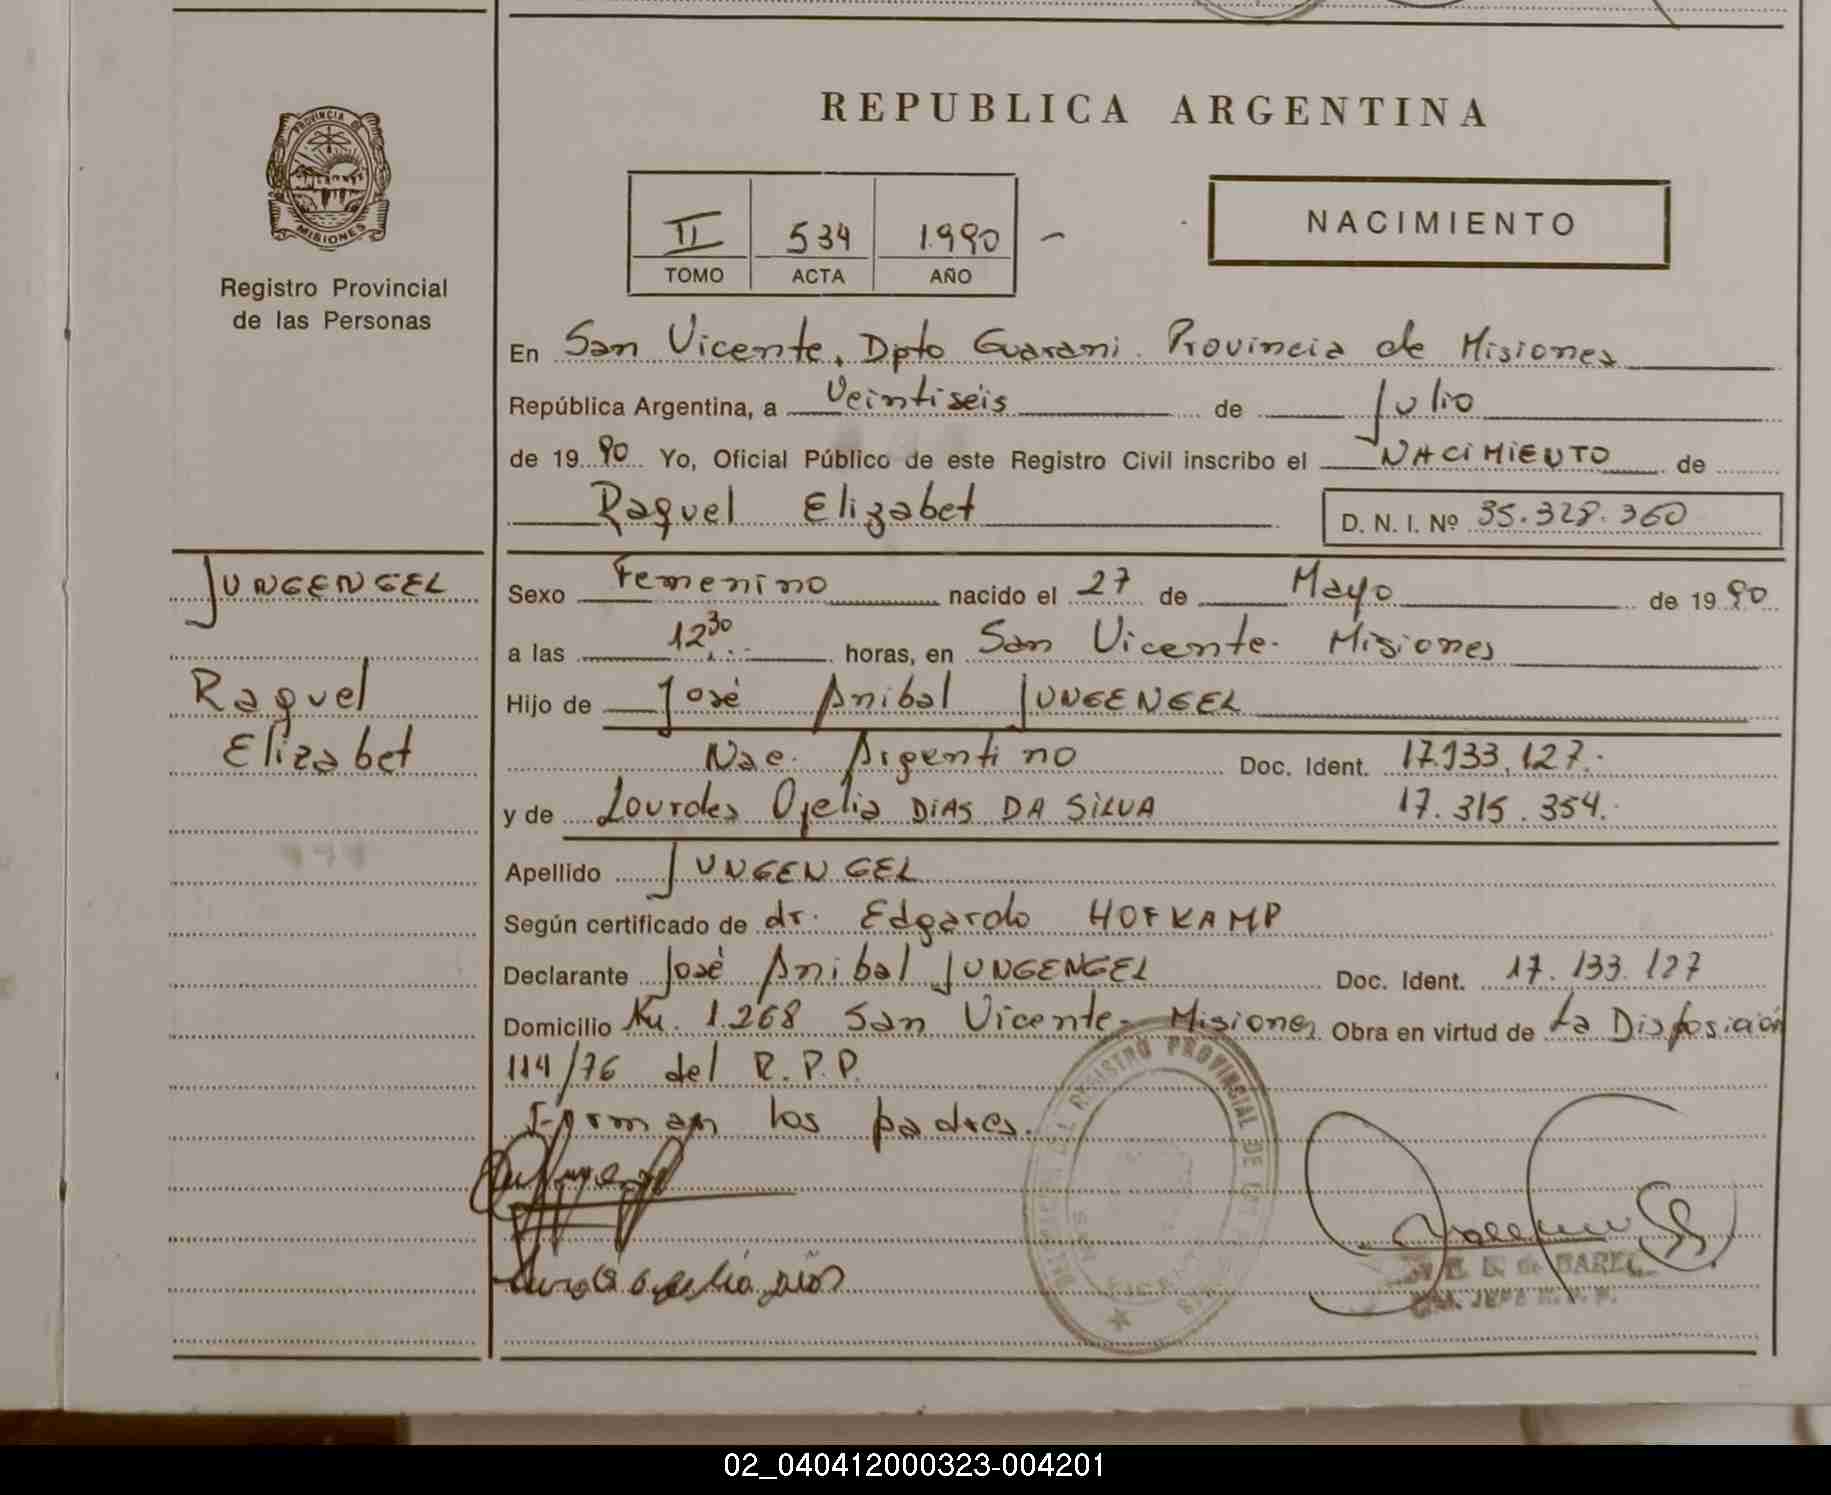 REPUBLICA ARGENTINA
PROVINCIA DE
MISIONES
Registro Provincial
de las Personas
II 534 1.990
TOMO ACTA AÑO
NACIMIENTO
En San Vicente, Dpto Guarani. Provincia de Misiones
República Argentina, a Veintiséis de Julio
de 19 90 Yo, Oficial Público de este Registro Civil inscribo el NACIMIENTO de
Raquel Elizabet
D. N. I. Nº 35.328.360
JUNGENGEL
Raquel
Elizabet
Sexo Femenino nacido el 27 de Mayo de 19 90
a las 12 30 horas, en San Vicente - Misiones
Hijo de José Anibal JUNGENGEL
Nac. Argentino Doc. Ident. 17.133.127.-
y de Lourdes Ofelia DIAS DA SILVA 17.315.354.
Apellido JUNGENGEL
Según certificado de dr. Edgardo HOFKAMP
Declarante José Anibal JUNGENGEL Doc. Ident. 17.133.127
Domicilio Km. 1.268 San Vicente - Misiones Obra en virtud de La Disposición
114/76 del R.P.P.
Forman los padres.
REGISTRO PROVINCIAL DE
02_040412000323-004201